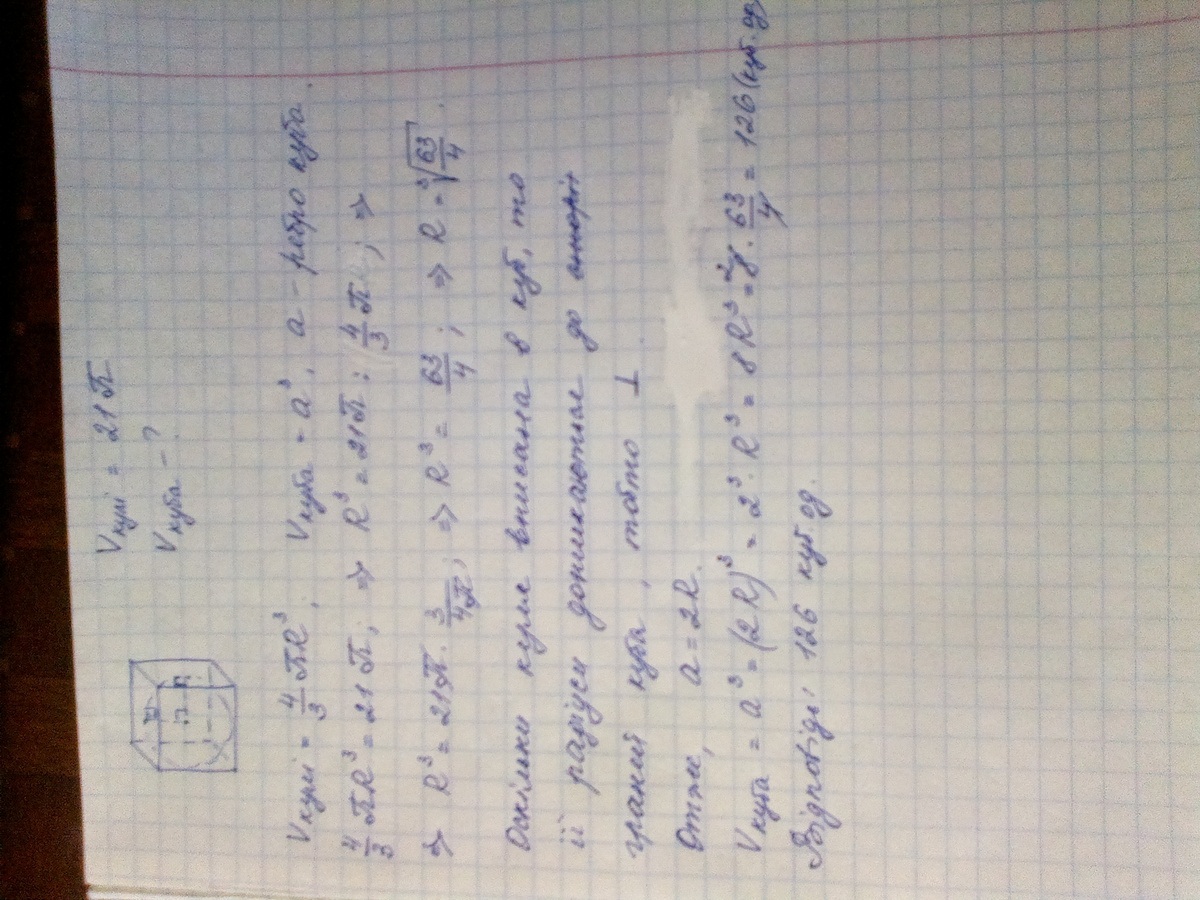 Vкулі = 21π
Vкуба – ?
Vкулі = 4/3 πR³, Vкуба = a³, a – ребро куба.
4/3 πR³ = 21π; ⇒ R³ = 21π : (4/3 π); ⇒
⇒ R³ = 21π · 3/4π; ⇒ R³ = 63/4; ⇒ R = ³√63/4.
Оскільки куля вписана в куб, то
її радіуси дотикаються до
граней куба, тобто ⊥.
Отже, a = 2R.
Vкуба = a³ = (2R)³ = 2³ · R³ = 8R³ = 8 · 63/4 = 126 (куб. од
Відповідь: 126 куб. од.